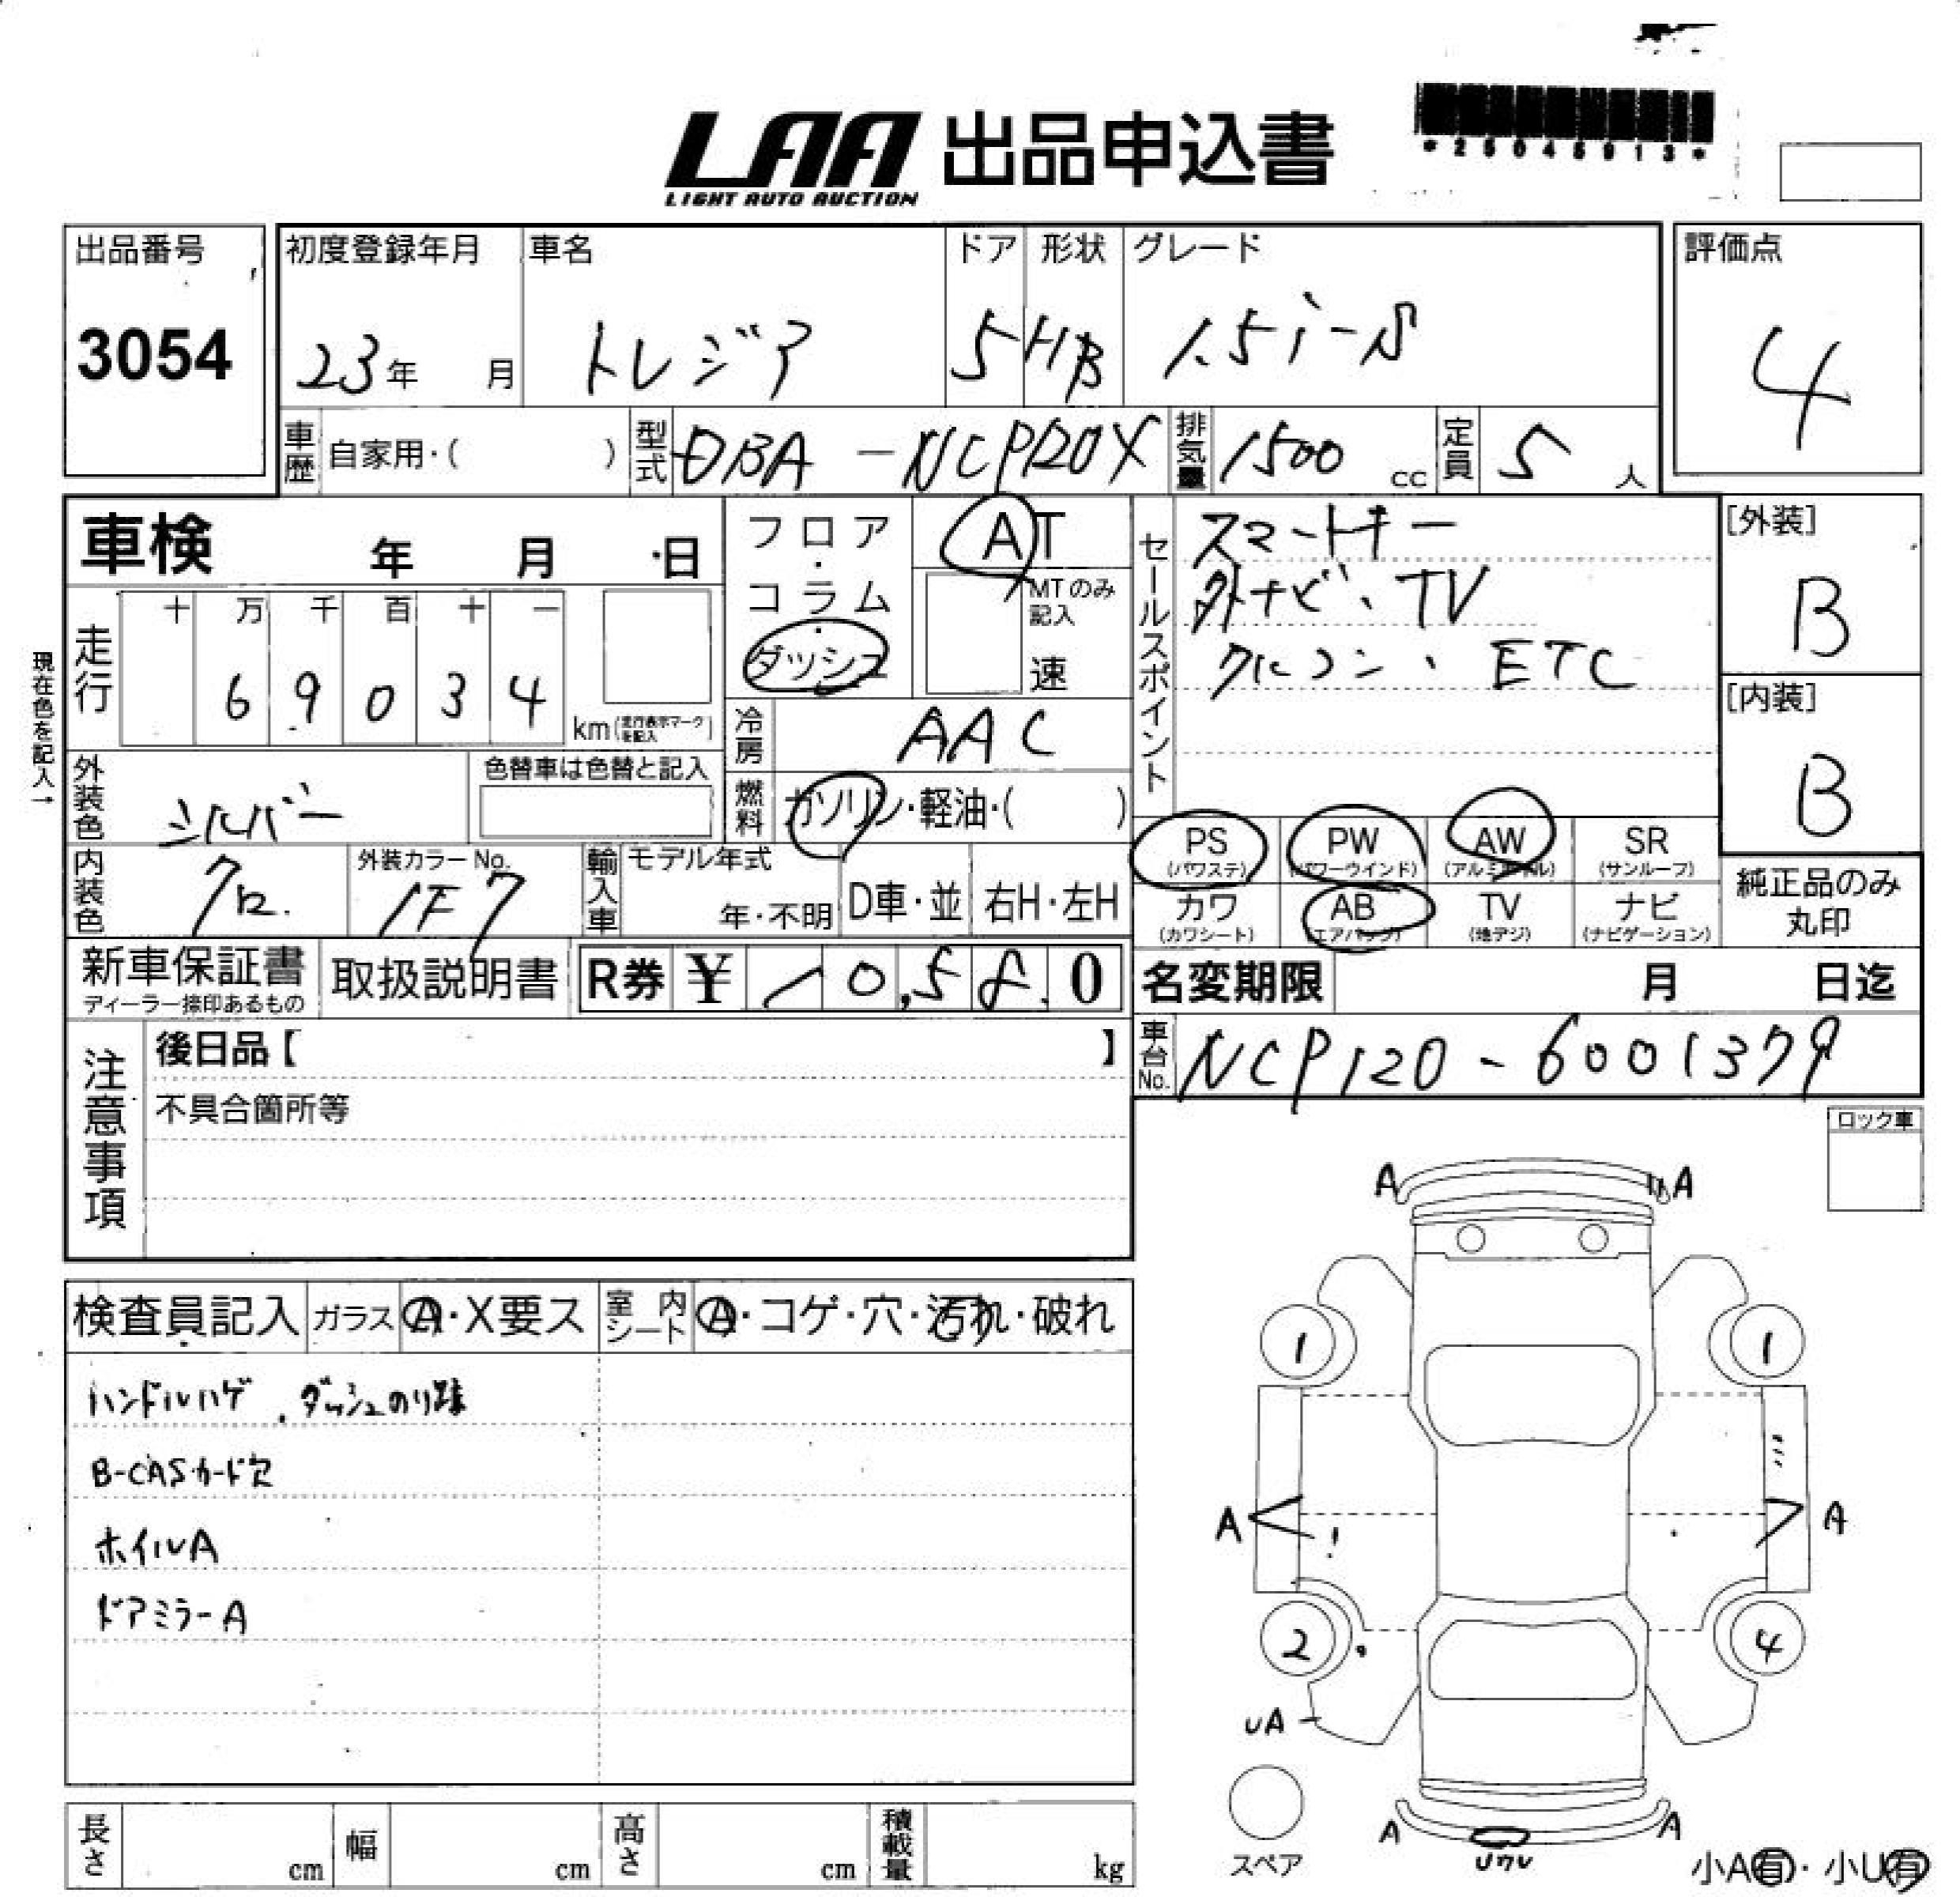 LAA 出品申込書
LIGHT AUTO AUCTION
*25045913*
出品番号
3054
初度登録年月
23年 月
車名
トレジア
ドア
5
形状
HB
グレード
1.5i-S
評価点
4
車歴 自家用・( )
型式 DBA-NCP120X
排気量 1500 cc
定員 5 人
車検 年 月 日
フロア・コラム・ダッシュ
AT
MTのみ記入
速
セールスポイント
スマートキー
外ナビ、TV
クルコン、ETC
[外装]
B
[内装]
B
現在色を記入→
走行
十 万 千 百 十 一
6 9 0 3 4
km(走行表示マークを記入)
冷房 AAC
外装色 シルバー
色替車は色替と記入
燃料 ガソリン・軽油・( )
PS (パワステ)
PW (パワーウインド)
AW (アルミホイル)
SR (サンルーフ)
カワ (カワシート)
AB (エアバッグ)
TV (地デジ)
ナビ (ナビゲーション)
純正品のみ丸印
内装色 クロ.
外装カラーNo. 1F7
輸入車 モデル年式
年・不明
D車・並
右H・左H
新車保証書
ディーラー捺印あるもの
取扱説明書
R券 ¥ 10,580
名変期限 月 日迄
注意事項
後日品【 】
不具合箇所等
車台No. NCP120-6001379
ロック車
検査員記入
ガラス A・X要ス
室内シート A・コゲ・穴・汚れ・破れ
ハンドルハゲ、ダッシュのり跡
B-CASカード欠
ホイルA
ドアミラーA
A A
1 1
A A
2 4
UA
スペア
A A
小A有・小U有
長さ cm
幅 cm
高さ cm
積載量 kg